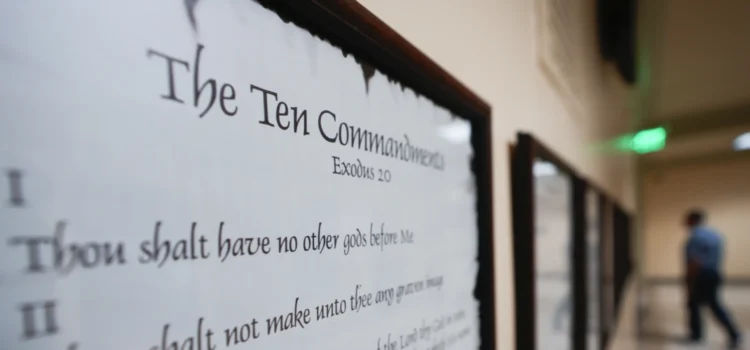 The Ten Commandments
Exodus 20
I
Thou shalt have no other gods before Me
II
shalt not make unto thee any graven image
the Lord thy God